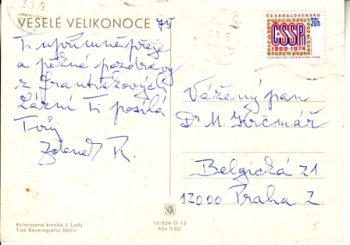 VESELÉ VELIKONOCE 75
Ti upřímně přeje
a pěkné pozdravy
z Františkových
Lázní Ti posílá
Tvůj
Zdeněk K.
ČESKOSLOVENSKO
30h
ČSSR
1969-1974
Vážený pan
Dr M. Krčmář
Belgická 21
12000 Praha 2
Kolorovaná kresba J. Lady
Tisk Severografia Děčín
10-539-O-12
Kčs 0,60